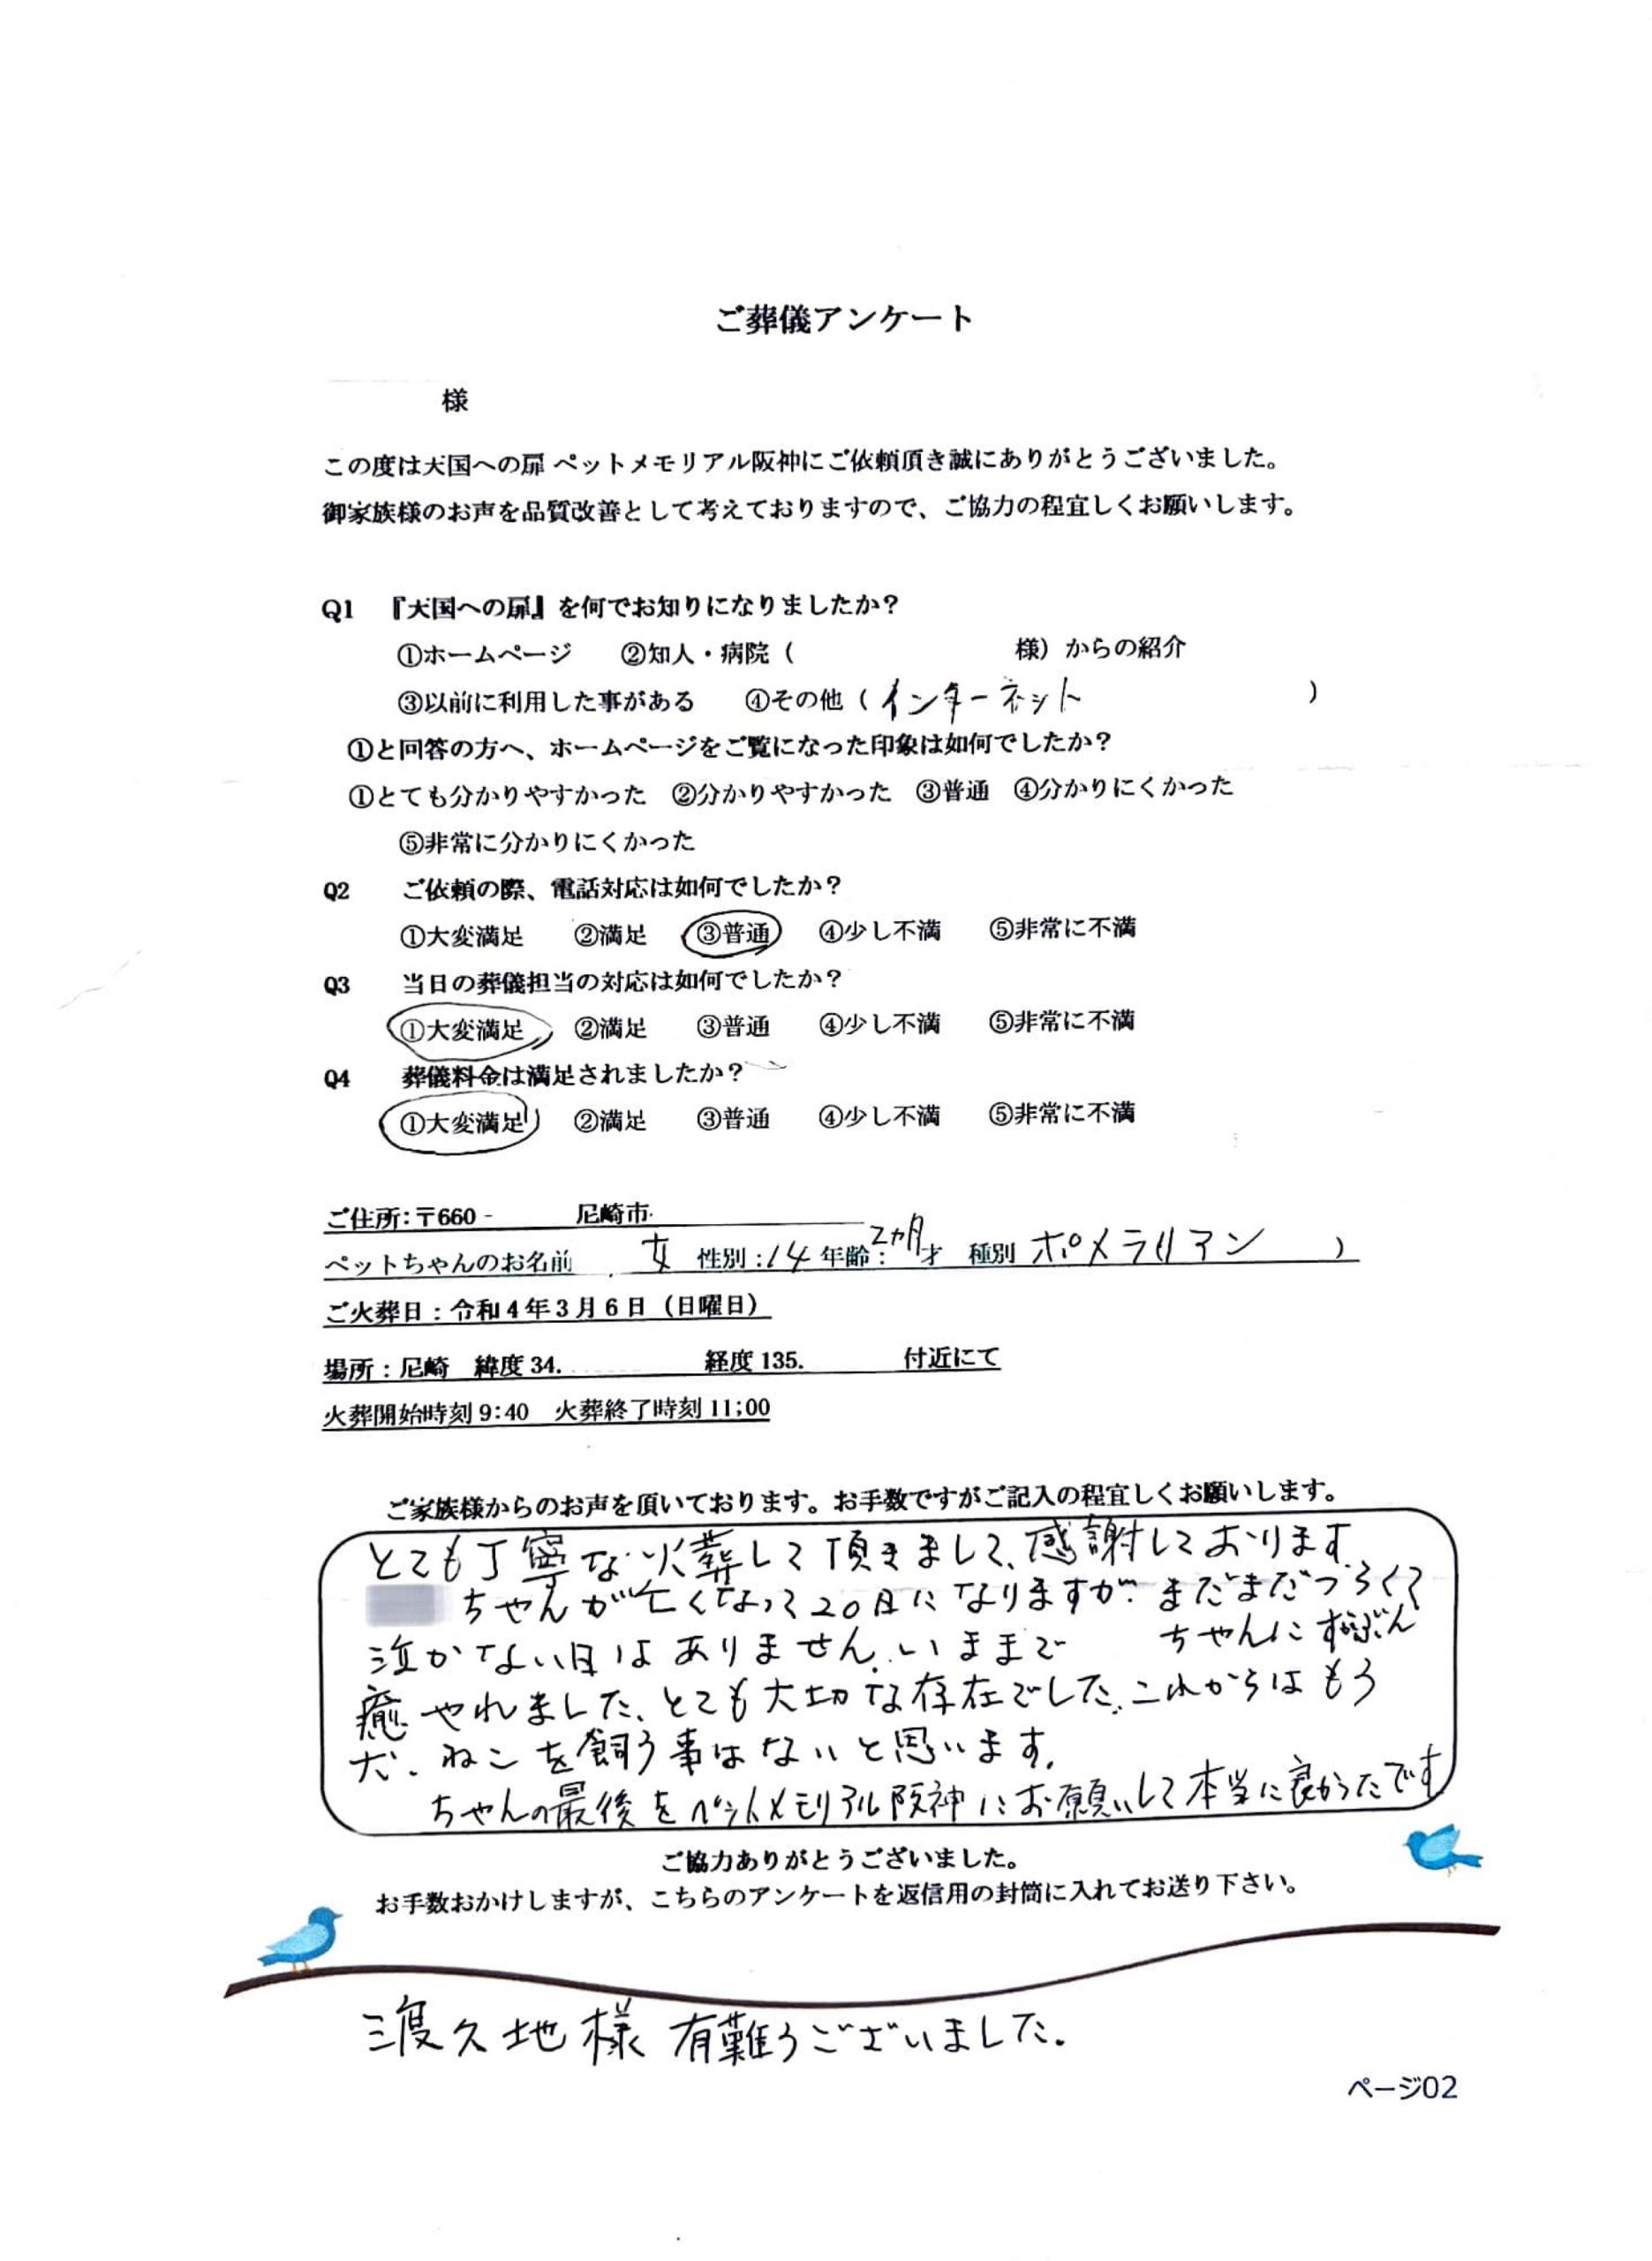 ご葬儀アンケート
様
この度は天国への扉 ペットメモリアル阪神にご依頼頂き誠にありがとうございました。
御家族様のお声を品質改善として考えておりますので、ご協力の程宜しくお願いします。
Q1 『天国への扉』を何でお知りになりましたか?
①ホームページ ②知人・病院( 様)からの紹介
③以前に利用した事がある ④その他(インターネット )
①と回答の方へ、ホームページをご覧になった印象は如何でしたか?
①とても分かりやすかった ②分かりやすかった ③普通 ④分かりにくかった
⑤非常に分かりにくかった
Q2 ご依頼の際、電話対応は如何でしたか?
①大変満足 ②満足 ③普通 ④少し不満 ⑤非常に不満
Q3 当日の葬儀担当の対応は如何でしたか?
①大変満足 ②満足 ③普通 ④少し不満 ⑤非常に不満
Q4 葬儀料金は満足されましたか?
①大変満足 ②満足 ③普通 ④少し不満 ⑤非常に不満
ご住所:〒660- 尼崎市
ペットちゃんのお名前 女 性別:14年齢:2ヵ月才 種別 ポメラリアン )
ご火葬日:令和4年3月6日(日曜日)
場所:尼崎 緯度34. 経度135. 付近にて
火葬開始時刻9:40 火葬終了時刻11;00
ご家族様からのお声を頂いております。お手数ですがご記入の程宜しくお願いします。
とても丁寧な火葬して頂きまして、感謝しております。
ちゃんが亡くなって20日になりますが、まだまだつらくて
泣かない日はありません。いままで ちゃんにずいぶん
癒やれました、とても大切な存在でした。これからはもう
犬、ねこを飼う事はないと思います。
ちゃんの最後をペットメモリアル阪神にお願いして本当に良かったです
ご協力ありがとうございました。
お手数おかけしますが、こちらのアンケートを返信用の封筒に入れてお送り下さい。
渡久地様 有難うございました。
ページ02